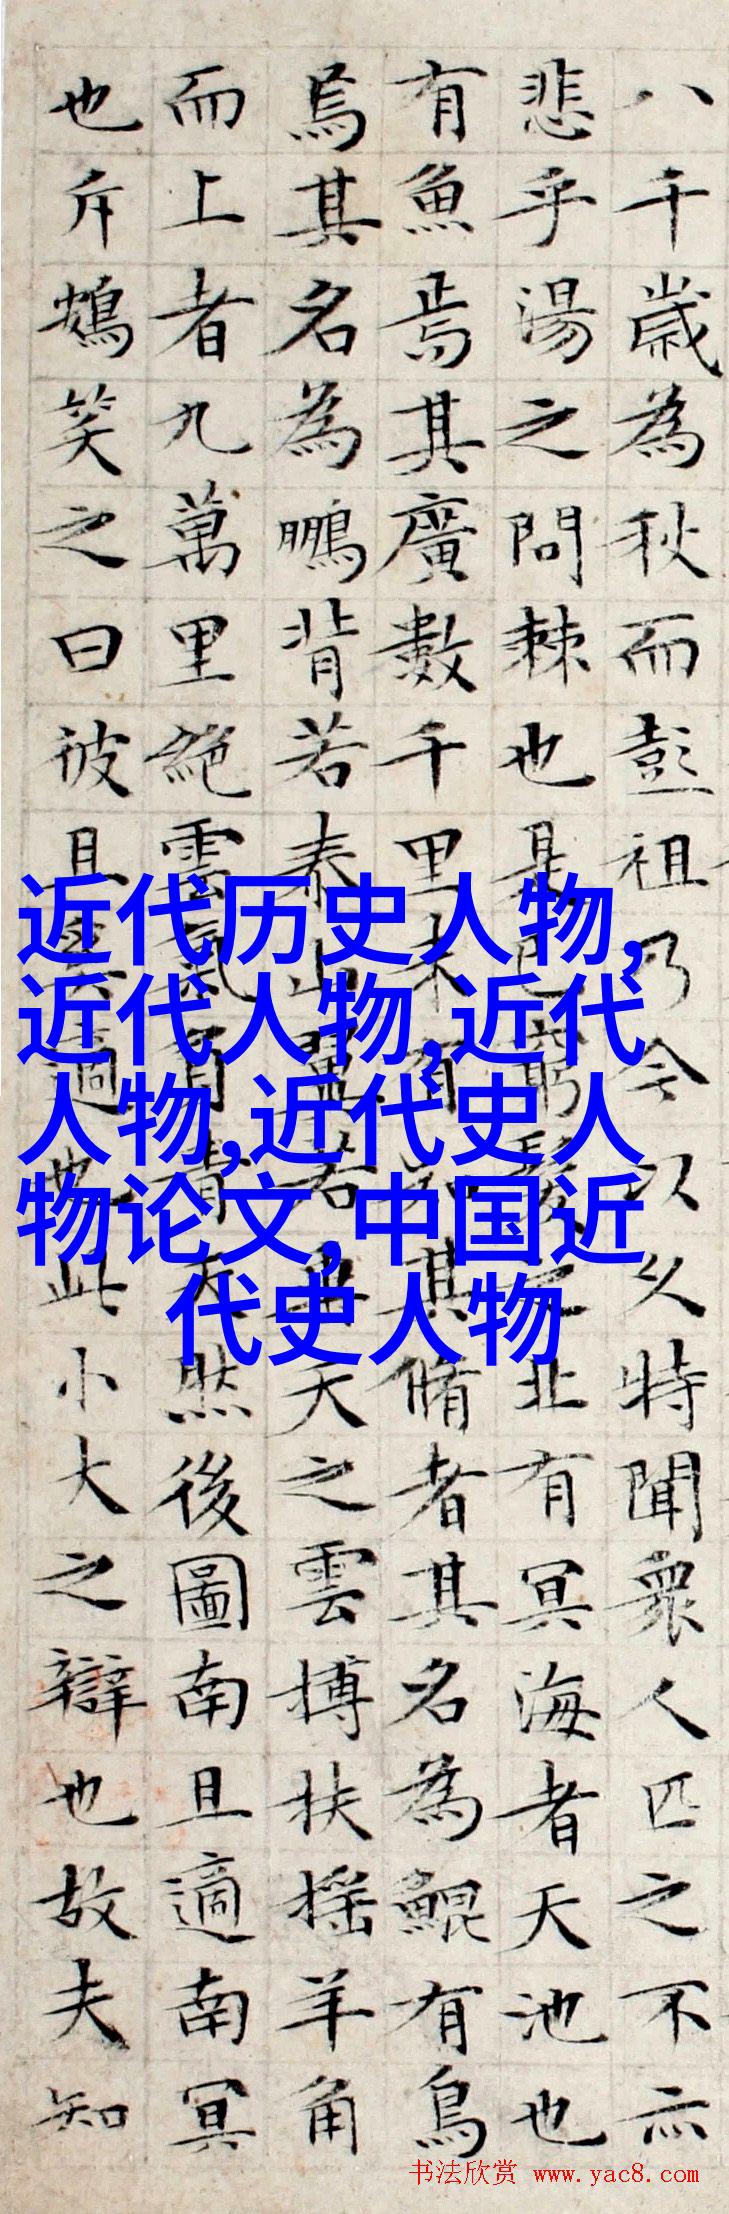 八千歲為秋而彭祖乃今以久特聞衆人匹之不亦
悲乎湯之問棘也是已窮髮之北有冥海者天池也
有魚焉其廣數千里未有知其脩者其名為鯤有鳥
焉其名為鵬背若泰山翼若垂天之雲搏扶搖羊角
而上者九萬里絕雲氣負青天然後圖南且適南冥
也斥鴳笑之曰彼且奚適也此小大之辯也故夫知
近代历史人物,
近代人物,近代
人物,近代史人
物论文,中国近
代史人物
书法欣赏 www.yac8.com